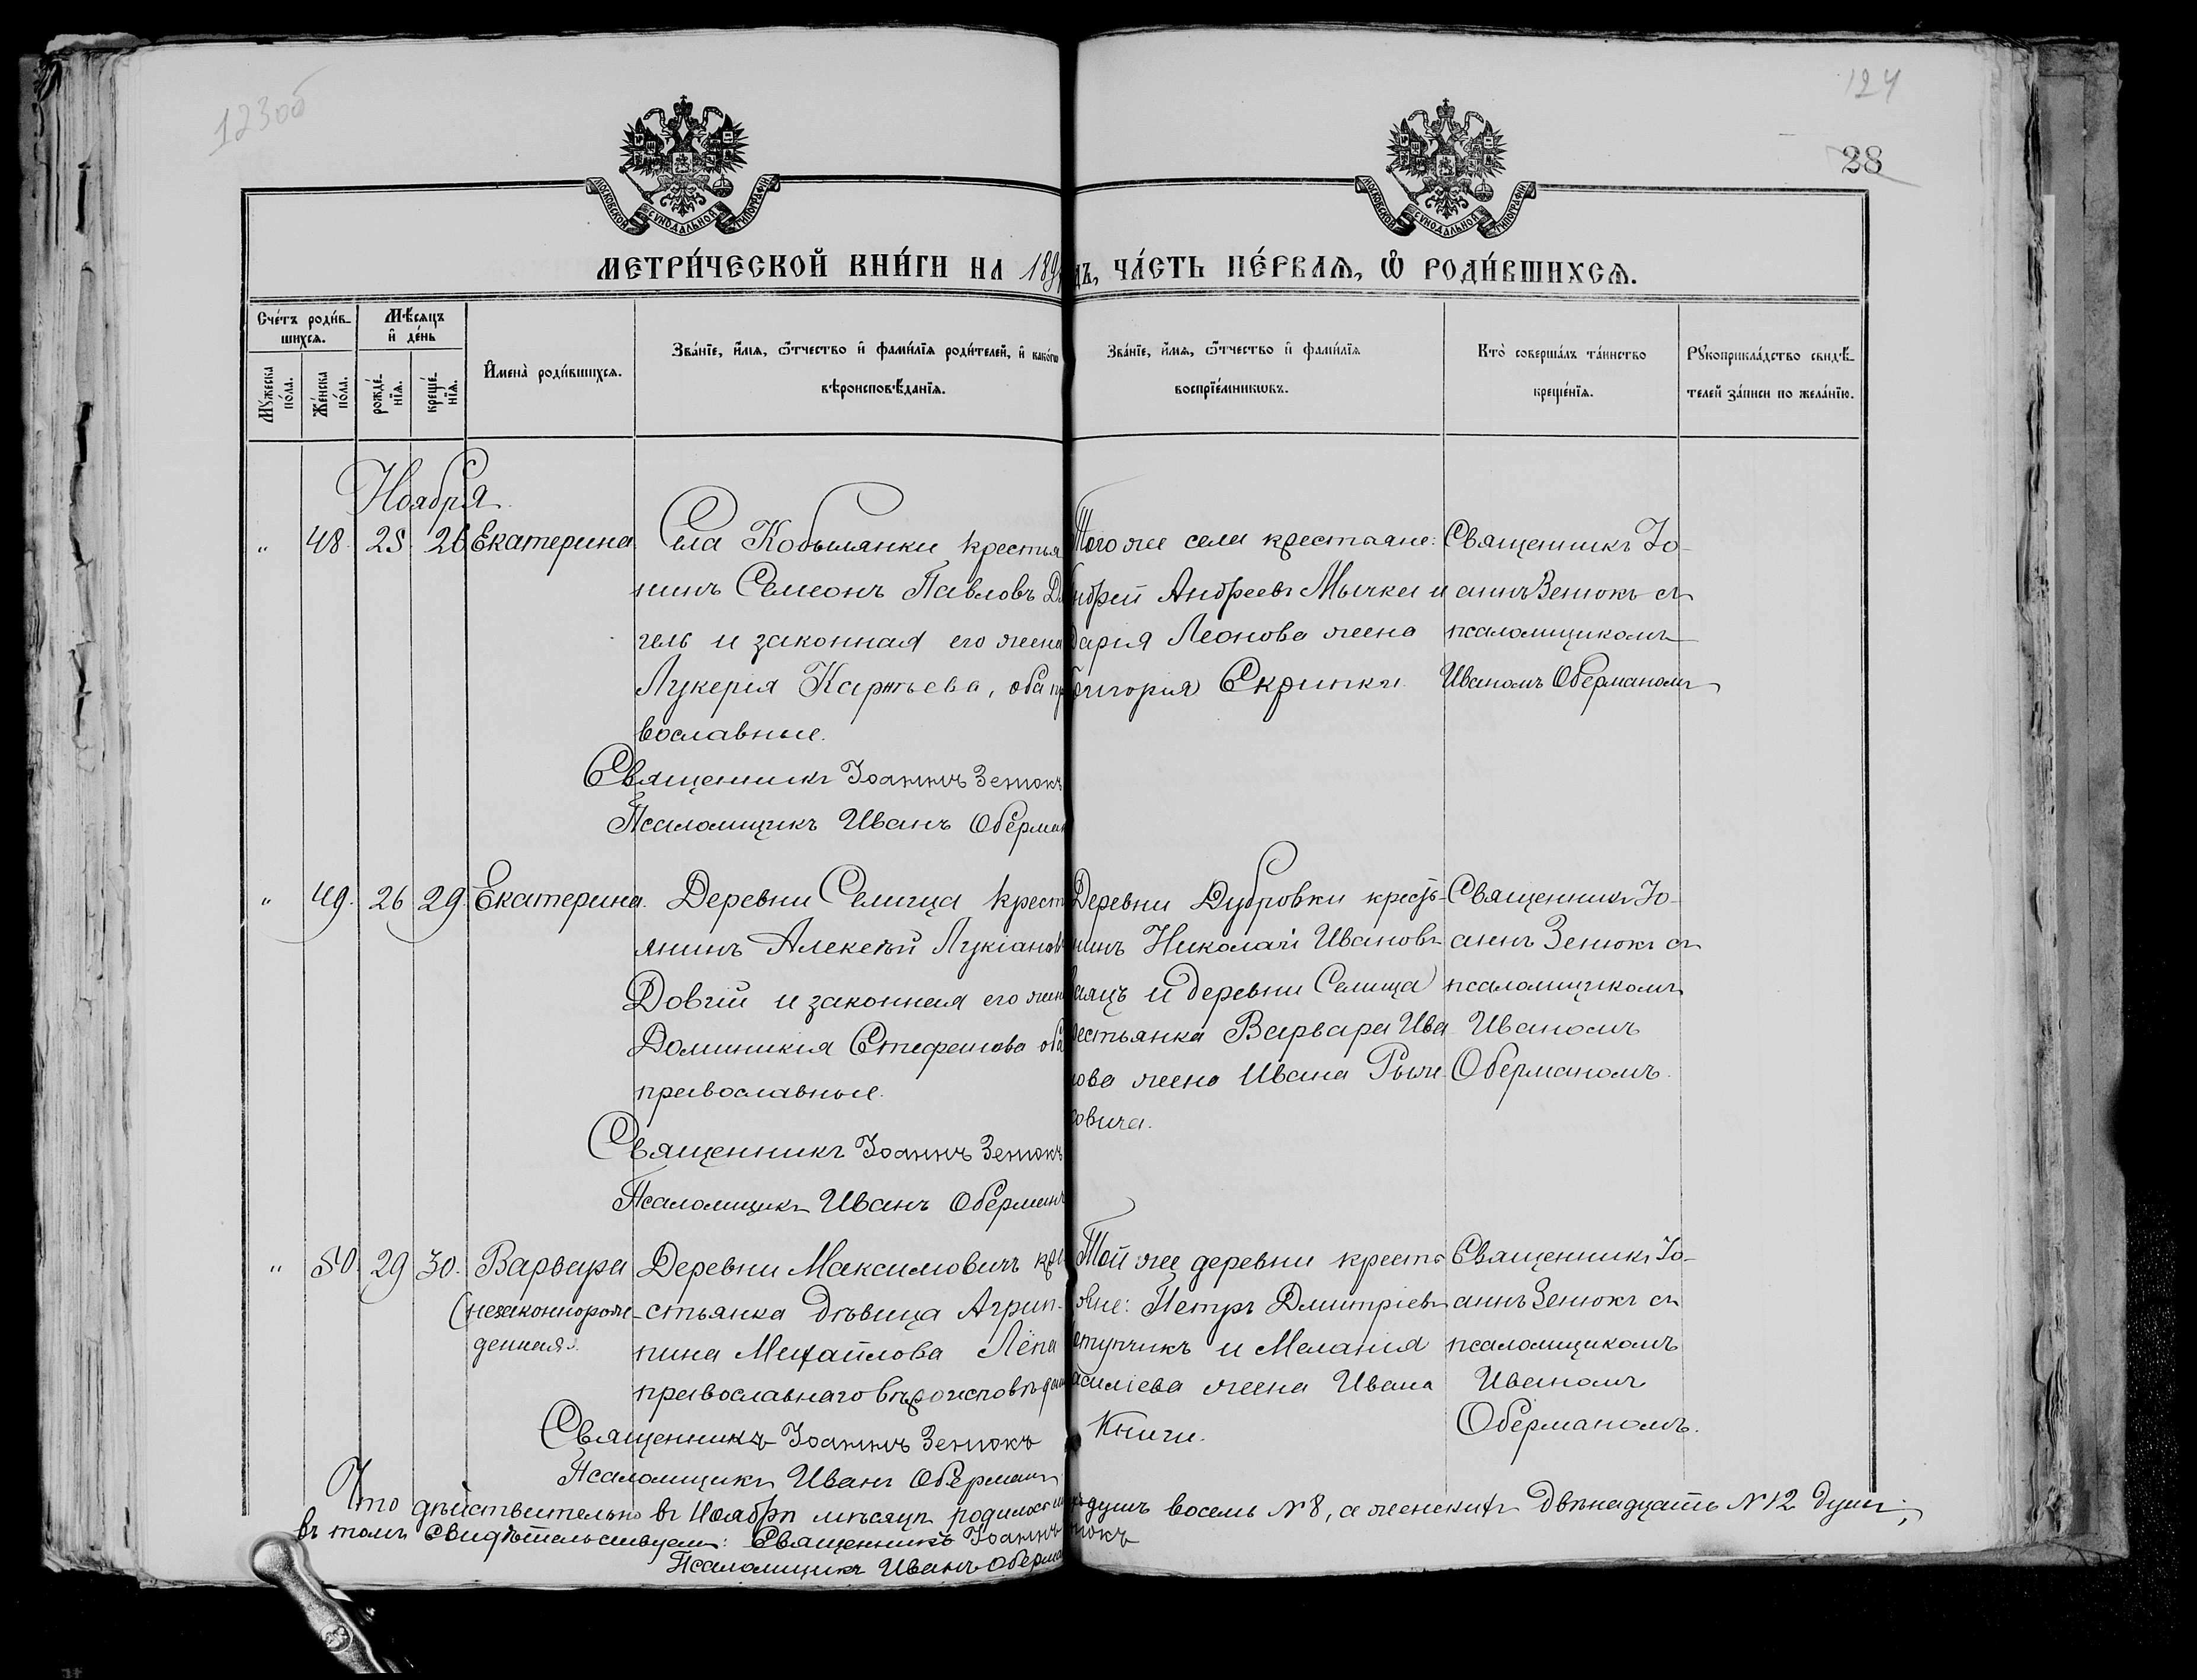 123об
124
28
МОСКОВСКОЙ СѴНОДАЛЬНОЙ ТИПОГРАФІИ
МОСКОВСКОЙ СѴНОДАЛЬНОЙ ТИПОГРАФІИ
МЕТРИ́ЧЕСКОЙ КНИ́ГИ НА 189 дъ, ЧА́СТЬ ПЕ́РВАѦ, Ѽ РОДИ́ВШИХСѦ.
Сче́тъ роди́в-
шихсѧ.
Мѣ́сѧцъ
и҆ де́нь
Мꙋ́жеска
по́ла.
Же́нска
по́ла.
рожде́-
нїѧ.
креще́-
нїѧ.
И҆мена̀ роди́вшихсѧ.
Зва́нїе, и҆́мѧ, ѻ҆́тчество и҆ фами́лїѧ роди́телей, и҆ како́гѡ
вѣроисповѣ́данїѧ.
Зва́нїе, и҆́мѧ, ѻ҆́тчество и҆ фами́лїѧ
воспрїе́мникѡвъ.
Кто̀ соверша́лъ та́инство
креще́нїѧ.
Рꙋкоприкла́дство свидѣ́-
телей за́писи по жела́нїю.
Ноября
" 48. 25. 26 Екатерина Села Кобылянки крестья
нинъ Семеонъ Павловъ
гель и законная его жена
Лукерія Карпьева, оба пр
вославные.
Священникъ Іоаннъ Зенюкъ
Псаломщикъ Иванъ Оберман
Того же села крестьяне:
ндрей Андреевъ Мычка и
Дарія Леонова жена
Григорія Скрипки
Священникъ Іо-
аннъ Зенюкъ съ
псаломщикомъ
Иваномъ Оберманомъ
" 49. 26 29. Екатерина. Деревни Селища крест
янинъ Алексѣй Лукіановъ
Довгій и законная его жен
Доминикія Стефанова оба
православные.
Священникъ Іоаннъ Зенюкъ
Псаломщикъ Иванъ Оберманъ
Деревни Дубровки кресть-
нинъ Николай Ивановъ
аяцъ и деревни Селища
рестьянка Варвара Ива
нова жена Ивана Рым
овича.
Священникъ Іо-
аннъ Зенюкъ съ
псаломщикомъ
Иваномъ
Оберманомъ.
" 50. 29 30. Варвара Деревни Максимовичъ кре-
(незаконнорож- стьянка дѣвица Агрип-
денная). пина Михайлова Лёпа
православнаго вѣроисповѣдан
Священникъ Іоаннъ Зенюкъ
Псаломщикъ Иванъ Оберманъ
Той же деревни кресть
яне: Петръ Дмитріевъ
тупчикъ и Меланія
асиліева жена Ивана
Книги.
Священникъ Іо-
аннъ Зенюкъ съ
псаломщикомъ
Иваномъ
Оберманомъ.
Что дѣйствительно въ Ноябрѣ мѣсяцѣ родилось душъ восемь №8, а женскихъ двѣнадцать №12 душъ,
въ томъ свидѣтельствуемъ: Священникъ Іоаннъ нюкъ
Псаломщикъ Иванъ Оберма